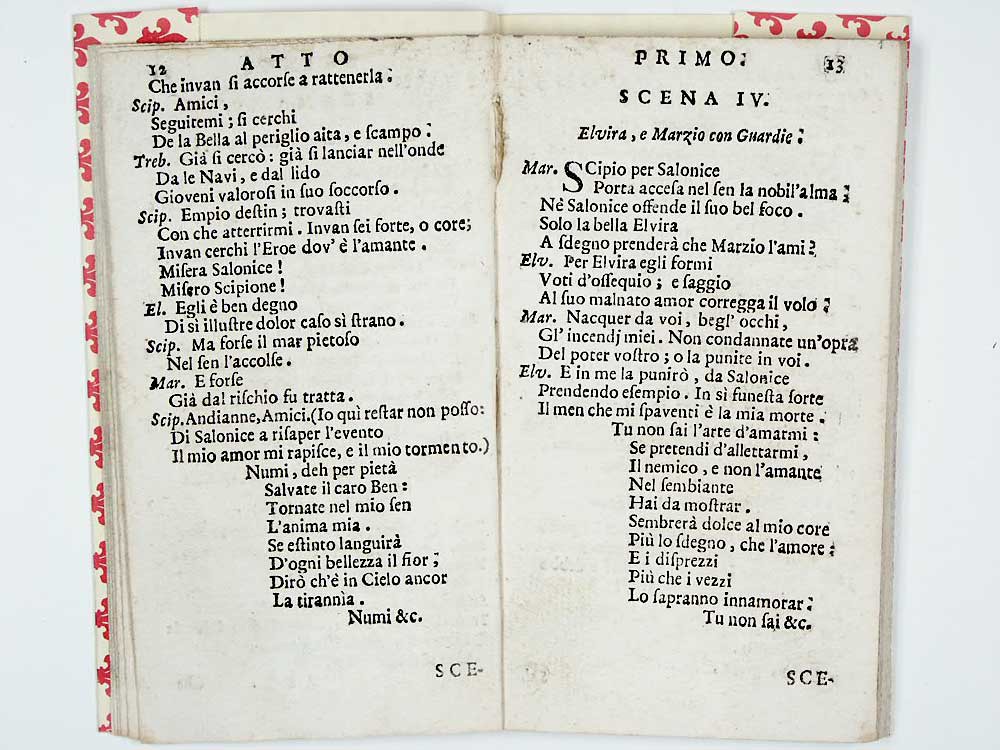 12 ATTO
Che invan ſi accorſe a rattenerla:
Scip. Amici,
Seguitemi; ſi cerchi
De la Bella al periglio aita, e ſcampo:
Treb. Già ſi cercò: già ſi lanciar nell'onde
Da le Navi, e dal lido
Gioveni valoroſi in ſuo ſoccorſo.
Scip. Empio deſtin; trovaſti
Con che atterrirmi. Invan ſei forte, o core;
Invan cerchi l'Eroe dov' è l'amante.
Miſera Salonice!
Miſero Scipione!
El. Egli è ben degno
Di sì illuſtre dolor caſo sì ſtrano.
Scip. Ma forſe il mar pietoſo
Nel ſen l'accolſe.
Mar. E forſe
Già dal riſchio fu tratta.
Scip. Andianne, Amici. (Io quì reſtar non poſſo:
Di Salonice a riſaper l'evento
Il mio amor mi rapiſce, e il mio tormento.)
Numi, deh per pietà
Salvate il caro Ben:
Tornate nel mio ſen
L'anima mia.
Se eſtinto languirà
D'ogni bellezza il fior;
Dirò ch'è in Cielo ancor
La tirannìa.
Numi &c.
SCE-
PRIMO: 13
SCENA IV.
Elvira, e Marzio con Guardie:
Mar. SCipio per Salonice
Porta acceſa nel ſen la nobil'alma:
Nè Salonice offende il ſuo bel foco.
Solo la bella Elvira
A ſdegno prenderà che Marzio l'ami?
Elv. Per Elvira egli formi
Voti d'oſſequio; e ſaggio
Al ſuo malnato amor corregga il volo:
Mar. Nacquer da voi, begl' occhi,
Gl' incendj miei. Non condannate un'opra
Del poter voſtro; o la punite in voi.
Elv. E in me la punirò, da Salonice
Prendendo eſempio. In sì funeſta ſorte
Il men che mi ſpaventi è la mia morte.
Tu non ſai l'arte d'amarmi:
Se pretendi d'allettarmi,
Il nemico, e non l'amante
Nel ſembiante
Hai da moſtrar.
Sembrerà dolce al mio core
Più lo ſdegno, che l'amore:
E i diſprezzi
Più che i vezzi
Lo ſapranno innamorar:
Tu non ſai &c.
SCE-